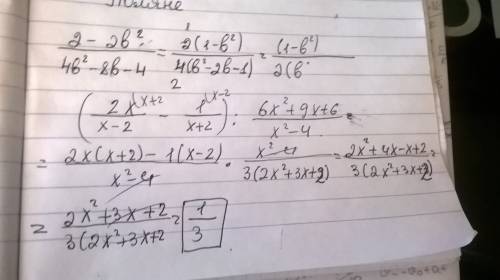 Поляне
(2 - 2b²)/(4b² - 8b - 4) = (2(1-b²))/(4(b²-2b-1)) = (1-b²)/(2(b
(2x\x+2/(x-2) - 1\x-2/(x+2)) : (6x²+9x+6)/(x²-4) =
= (2x(x+2) - 1(x-2))/(x²-4) · (x²-4)/(3(2x²+3x+2)) = (2x²+4x-x+2)/(3(2x²+3x+2)) =
= (2x²+3x+2)/(3(2x²+3x+2) = 1/3